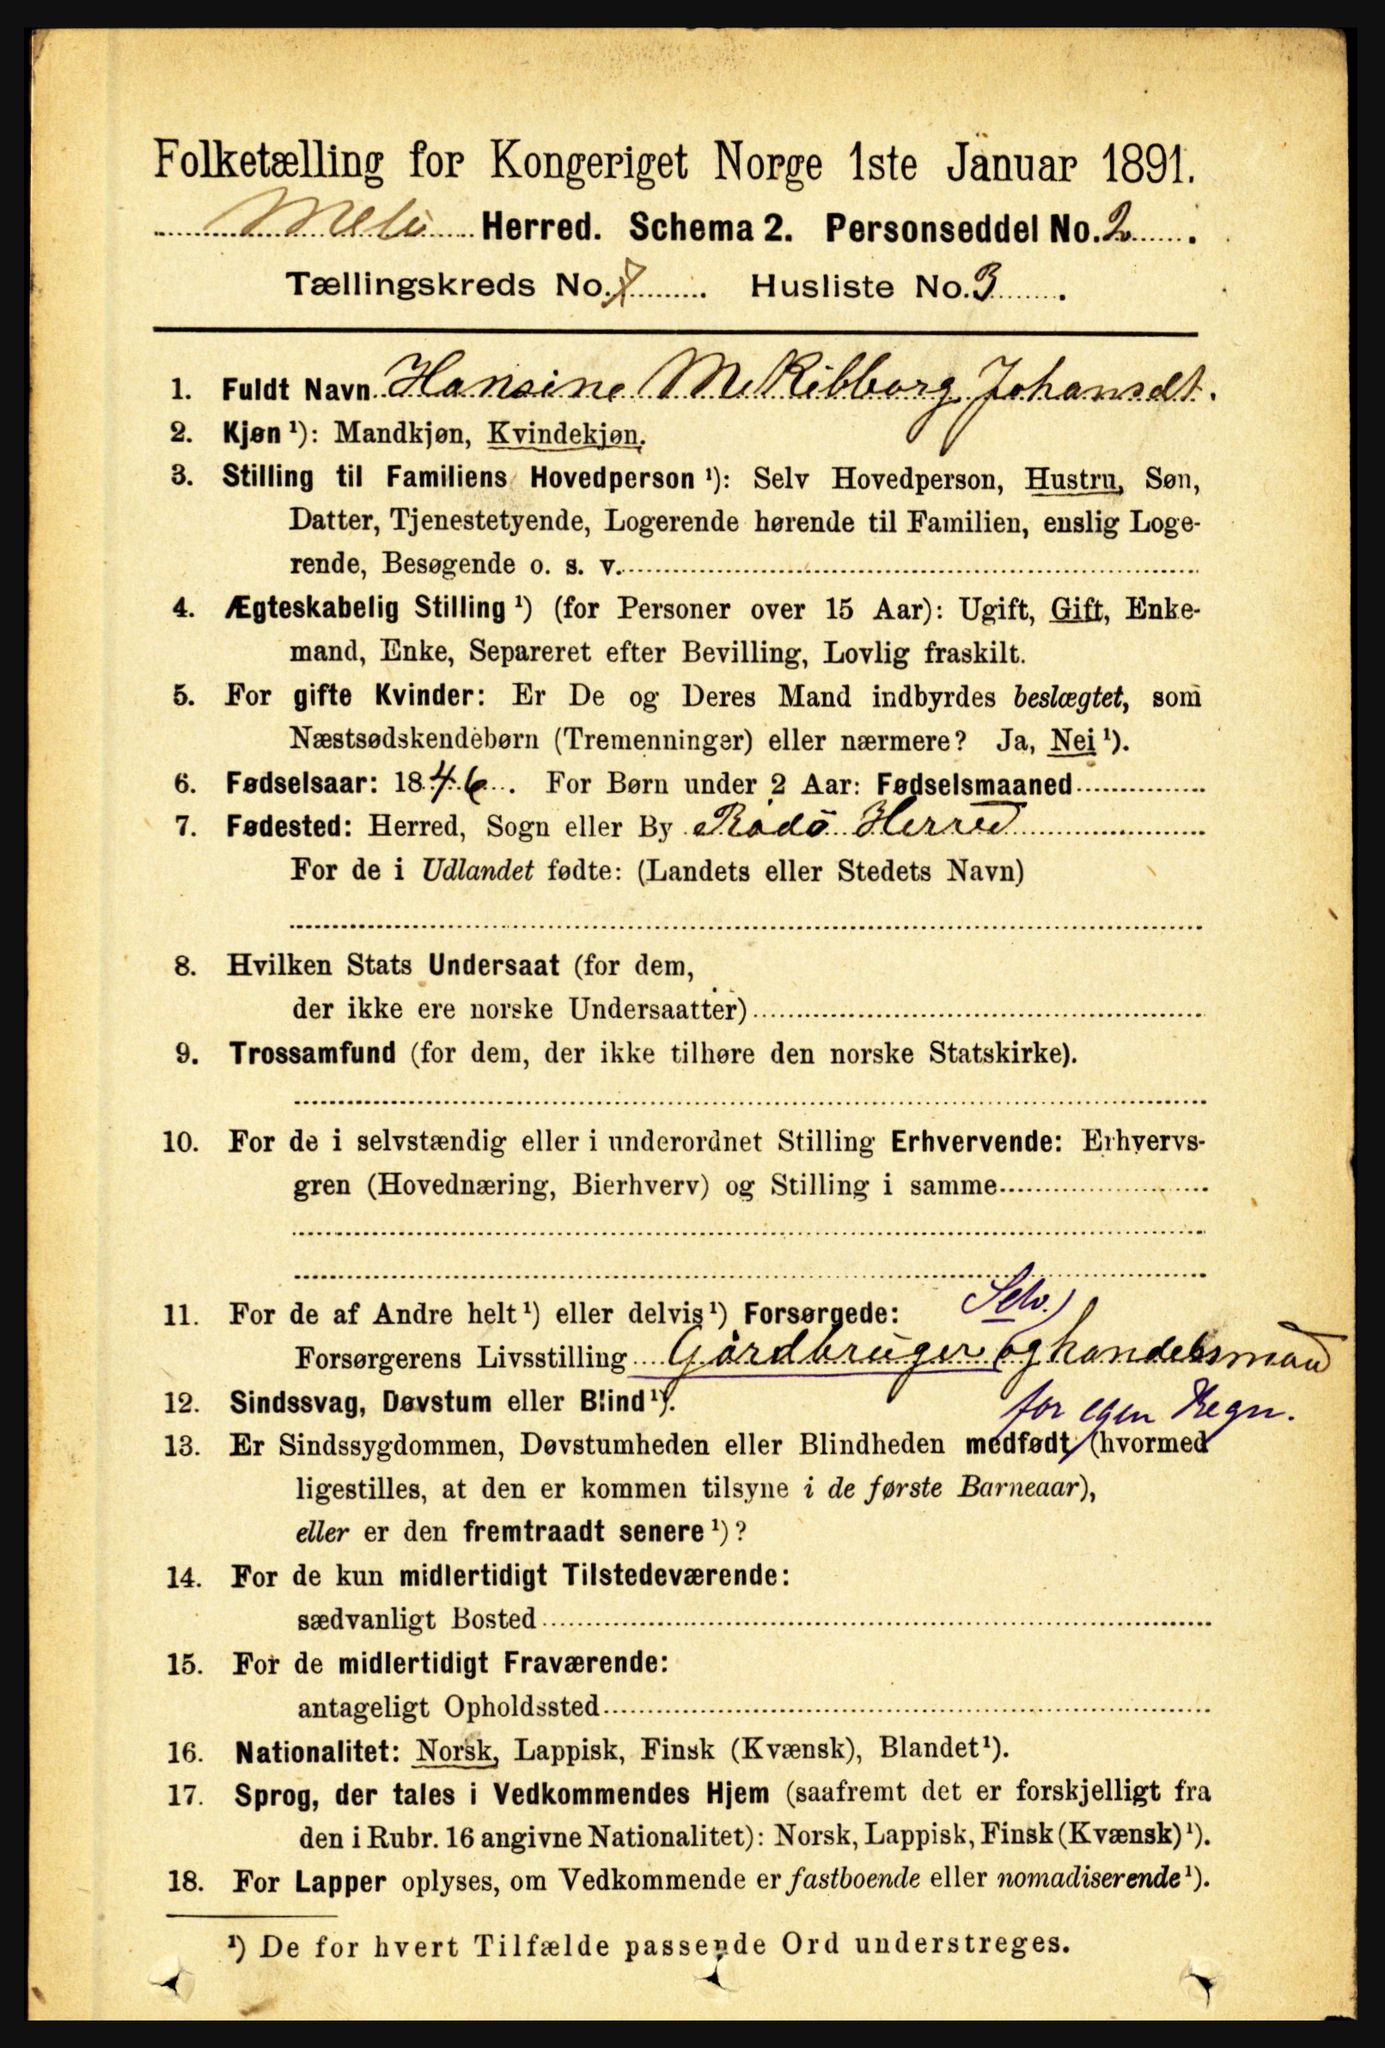 Folketælling for Kongeriget Norge 1ste Januar 1891.
Melø Herred. Schema 2. Personseddel No. 2.
Tællingskreds No. 7. Husliste No. 3.
1. Fuldt Navn Hansine M. Ribborg Johansdt.
2. Kjøn ¹): Mandkjøn, Kvindekjøn.
3. Stilling til Familiens Hovedperson ¹): Selv Hovedperson, Hustru, Søn,
Datter, Tjenestetyende, Logerende hørende til Familien, enslig Loge-
rende, Besøgende o. s. v.
4. Ægteskabelig Stilling ¹) (for Personer over 15 Aar): Ugift, Gift, Enke-
mand, Enke, Separeret efter Bevilling, Lovlig fraskilt.
5. For gifte Kvinder: Er De og Deres Mand indbyrdes beslægtet, som
Næstsødskendebørn (Tremenninger) eller nærmere? Ja, Nei ¹).
6. Fødselsaar: 1846. For Børn under 2 Aar: Fødselsmaaned
7. Fødested: Herred, Sogn eller By Rødø Herred
For de i Udlandet fødte: (Landets eller Stedets Navn)
8. Hvilken Stats Undersaat (for dem,
der ikke ere norske Undersaatter)
9. Trossamfund (for dem, der ikke tilhøre den norske Statskirke).
10. For de i selvstændig eller i underordnet Stilling Erhvervende: Erhvervs-
gren (Hovednæring, Bierhverv) og Stilling i samme
11. For de af Andre helt ¹) eller delvis ¹) Forsørgede: Selv.
Forsørgerens Livsstilling Gårdbruger og handelsmand
12. Sindssvag, Døvstum eller Blind ¹). for egen Regn.
13. Er Sindssygdommen, Døvstumheden eller Blindheden medfødt (hvormed
ligestilles, at den er kommen tilsyne i de første Barneaar),
eller er den fremtraadt senere ¹)?
14. For de kun midlertidigt Tilstedeværende:
sædvanligt Bosted
15. For de midlertidigt Fraværende:
antageligt Opholdssted
16. Nationalitet: Norsk, Lappisk, Finsk (Kvænsk), Blandet ¹).
17. Sprog, der tales i Vedkommendes Hjem (saafremt det er forskjelligt fra
den i Rubr. 16 angivne Nationalitet): Norsk, Lappisk, Finsk (Kvænsk) ¹).
18. For Lapper oplyses, om Vedkommende er fastboende eller nomadiserende ¹).
¹) De for hvert Tilfælde passende Ord understreges.